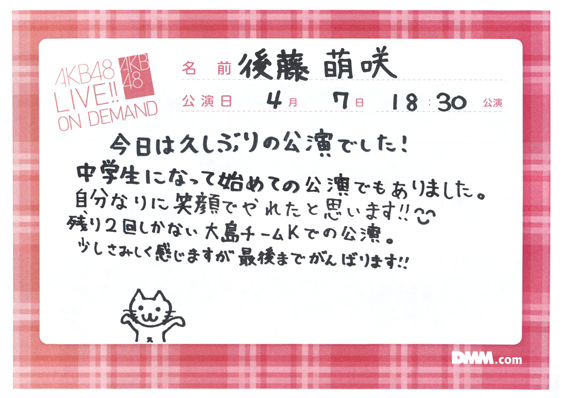 AKB48
LIVE!!
ON DEMAND
AKB
48
名前 後藤 萌咲
公演日 4月 7日 18:30 公演
今日は久しぶりの公演でした!
中学生になって始めての公演でもありました。
自分なりに笑顔でやれたと思います!!
残り2回しかない大島チームKでの公演。
少しさみしく感じますが最後までがんばります!!
DMM.com